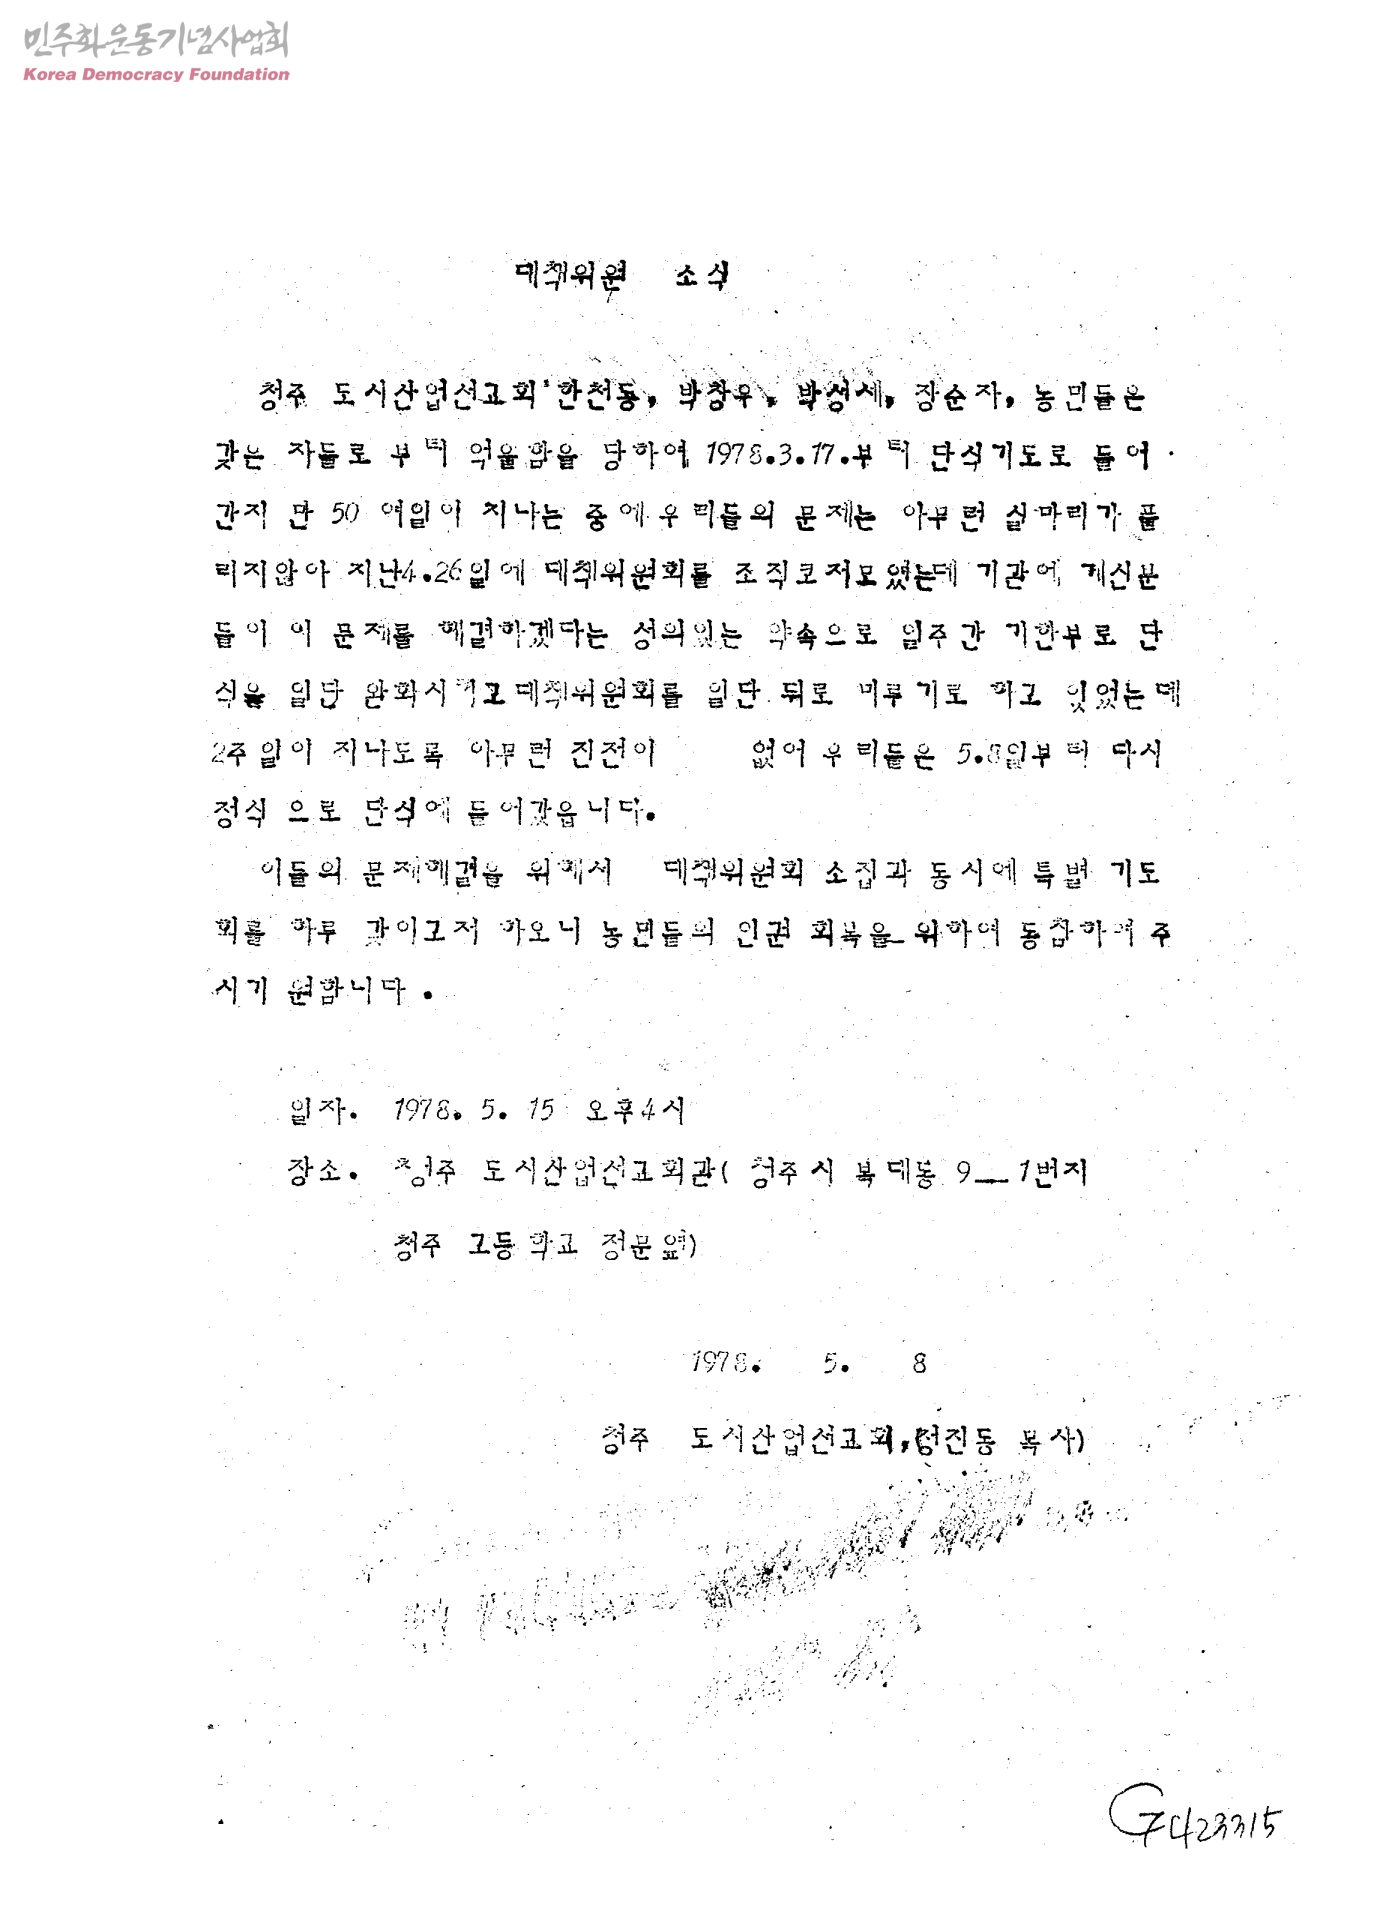 민주화운동기념사업회
Korea Democracy Foundation
대책위원 소식
청주 도시산업선교회 한천동, 박창우, 박성세, 장순자, 농민들은
갖은 자들로 부터 억울함을 당하여 1978.3.17.부터 단식기도로 들어
간지 만 50 여일이 지나는 중에 우리들의 문제는 아무런 실마리가 풀
리지않아 지난4.26일에 대책위원회를 조직코저모였는데 기관에 계신분
들이 이 문제를 해결하겠다는 성의있는 약속으로 일주간 기한부로 단
식을 일단 완화시키고대책위원회를 일단 뒤로 미루기로 하고 있었는데
2주일이 지나도록 아무런 진전이 없어 우리들은 5.8일부터 다시
정식 으로 단식에 들어갔읍니다.
이들의 문제해결을 위해서 대책위원회 소집과 동시에 특별 기도
회를 하루 갖이고저 하오니 농민들의 인권 회복을 위하여 동참하여 주
시기 원합니다.
일자. 1978. 5. 15 오후4시
장소. 청주 도시산업선교회관( 청주시 복대동 9__1번지
청주 고등학교 정문옆)
1978. 5. 8
청주 도시산업선교회,(정진동 목사)
G7423315